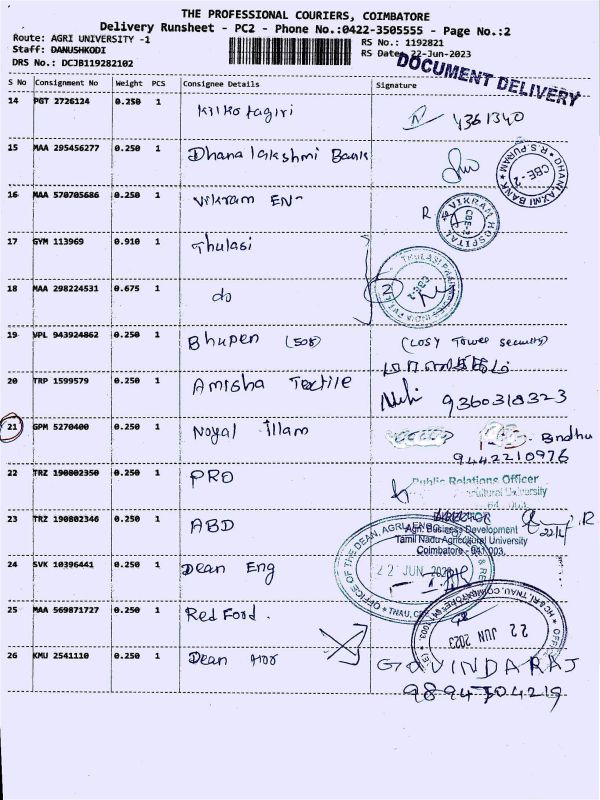 THE PROFESSIONAL COURIERS, COIMBATORE
Delivery Runsheet - PC2 - Phone No.:0422-3505555 - Page No.:2
Route: AGRI UNIVERSITY -1
RS No.: 1192821
Staff: DANUSHKODI
RS Date: 22-Jun-2023
DRS No.: DCJB119282102
DOCUMENT DELIVERY
S No Consignment No Weight PCS Consignee Details Signature
14 PGT 2726124 0.250 1 Kilkotagiri 4361340
15 MAA 295456277 0.250 1 Dhanalakshmi Bank
DHANLAXMI BANK * R.S.PURAM * CBE-2
16 MAA 570705686 0.250 1 Vikram EN- R
VIKRAM HOSPITAL CBE-2
17 GYM 113969 0.910 1 Thulasi
THULASI
18 MAA 298224531 0.675 1 do
19 VPL 943924862 0.250 1 Bhupen (508) (Losy Tower security)
20 TRP 1599579 0.250 1 Amisha Textile 9360318323
21 GPM 5270400 0.250 1 Noyal illam Bndhu
9442210976
22 TRZ 190802350 0.250 1 PRO
Public Relations Officer
23 TRZ 190802346 0.250 1 ABD
DIRECTOR
Agri. Business Development
Tamil Nadu Agricultural University
Coimbatore - 641 003.
24 SVK 10396441 0.250 1 Dean Eng
OFFICE OF THE DEAN, AGRI. ENG
22 JUN 2023
25 MAA 569871727 0.250 1 Red Ford.
22 JUN 2023
26 KMU 2541110 0.250 1 Dean Hor GOVINDARAJ
9894704219